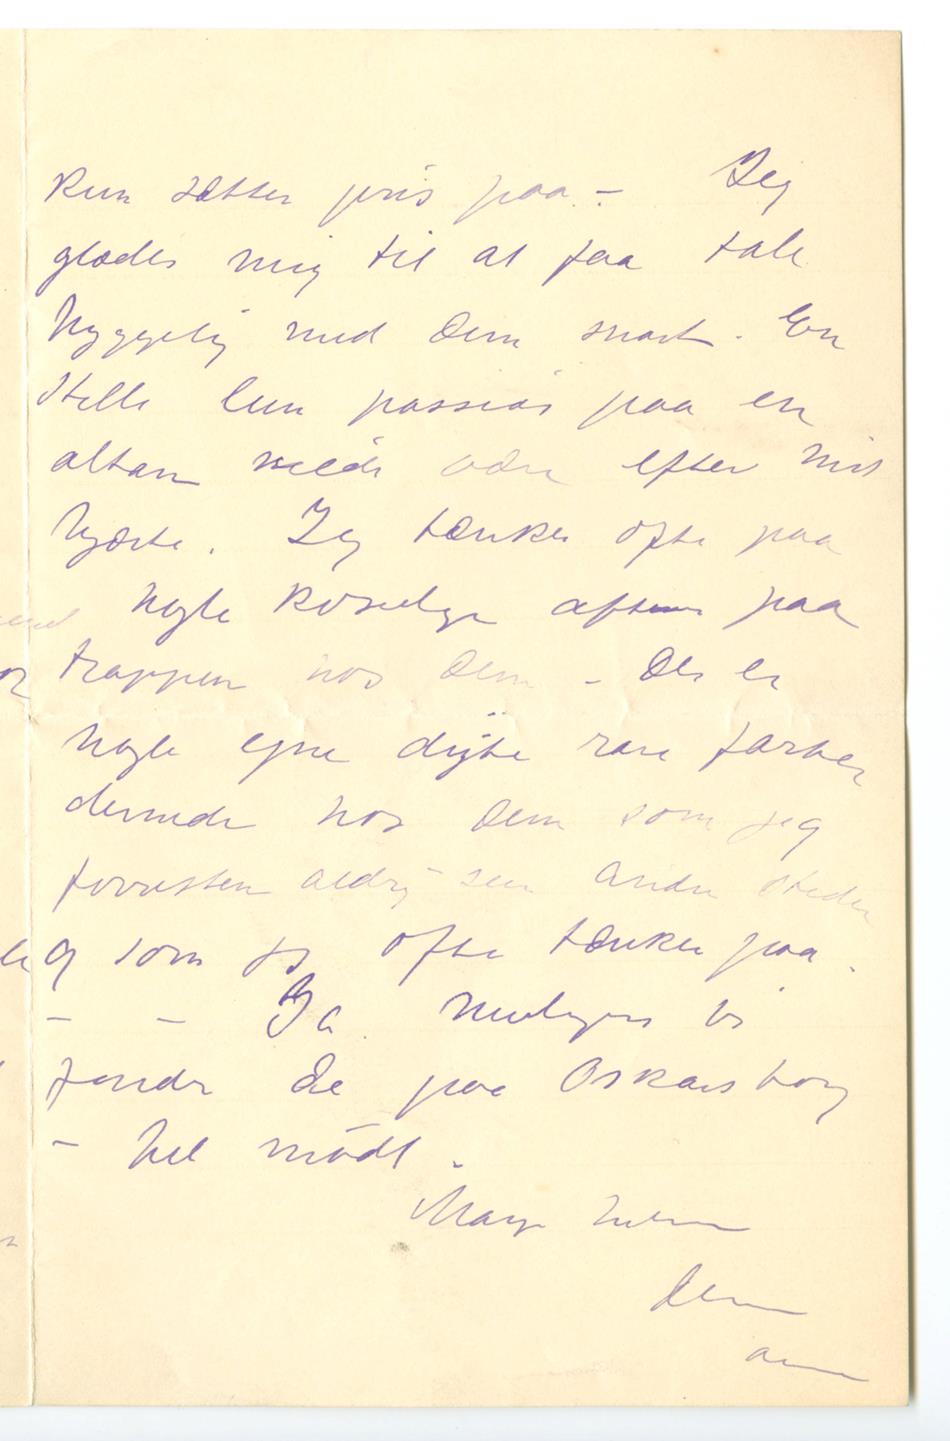 kun sætter pris paa. – Jeg
glæder mig til at faa tale
hyggelig med Dem snart. En
stille lun passiar paa en
altan vilde være efter mit
hjærte. Jeg tænker ofte paa
nogle koselige aftener paa
trappen hos Dem – Der er
nogle egne dybe rare farver
dernede hos Dem som jeg
forresten aldrig seer andre steder
og som jeg ofte tænker paa.
– – Ja muligens vi
finder De paa Oskarsborg
– Vel mødt.
Mange hilsner
Deres